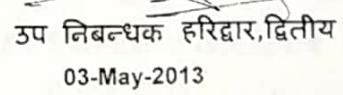 उप निबन्धक हरिद्वार,द्वितीय
03-May-2013